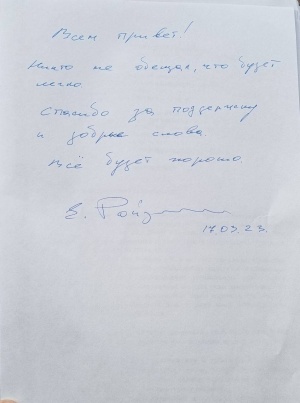 Всем привет!
Никто не обещал, что будет
легко
Спасибо за поддержку
и добрые слова
Всё будет хорошо.
Е. Ройзман
17.03.23.